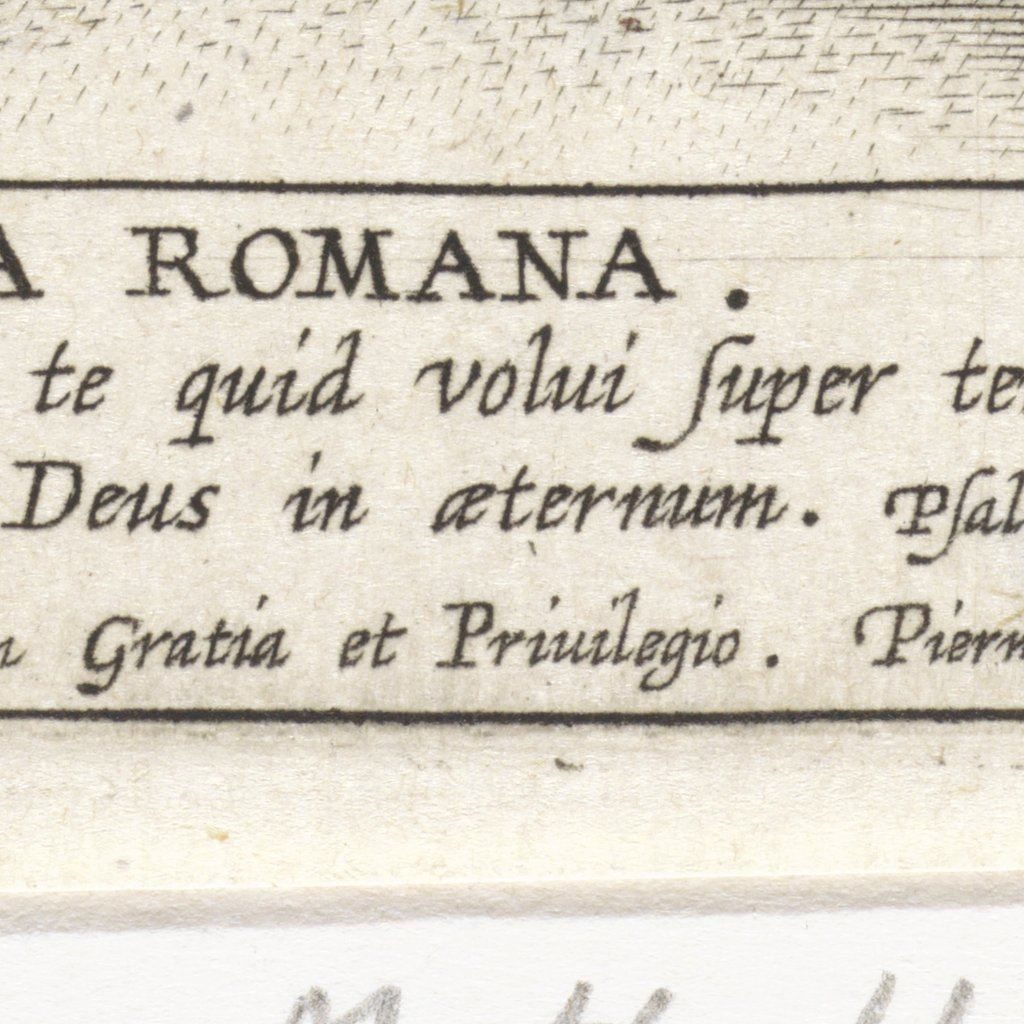 A ROMANA.
te quid volui ſuper te
Deus in æternum. Pſal
Gratia et Priuilegio. Piern